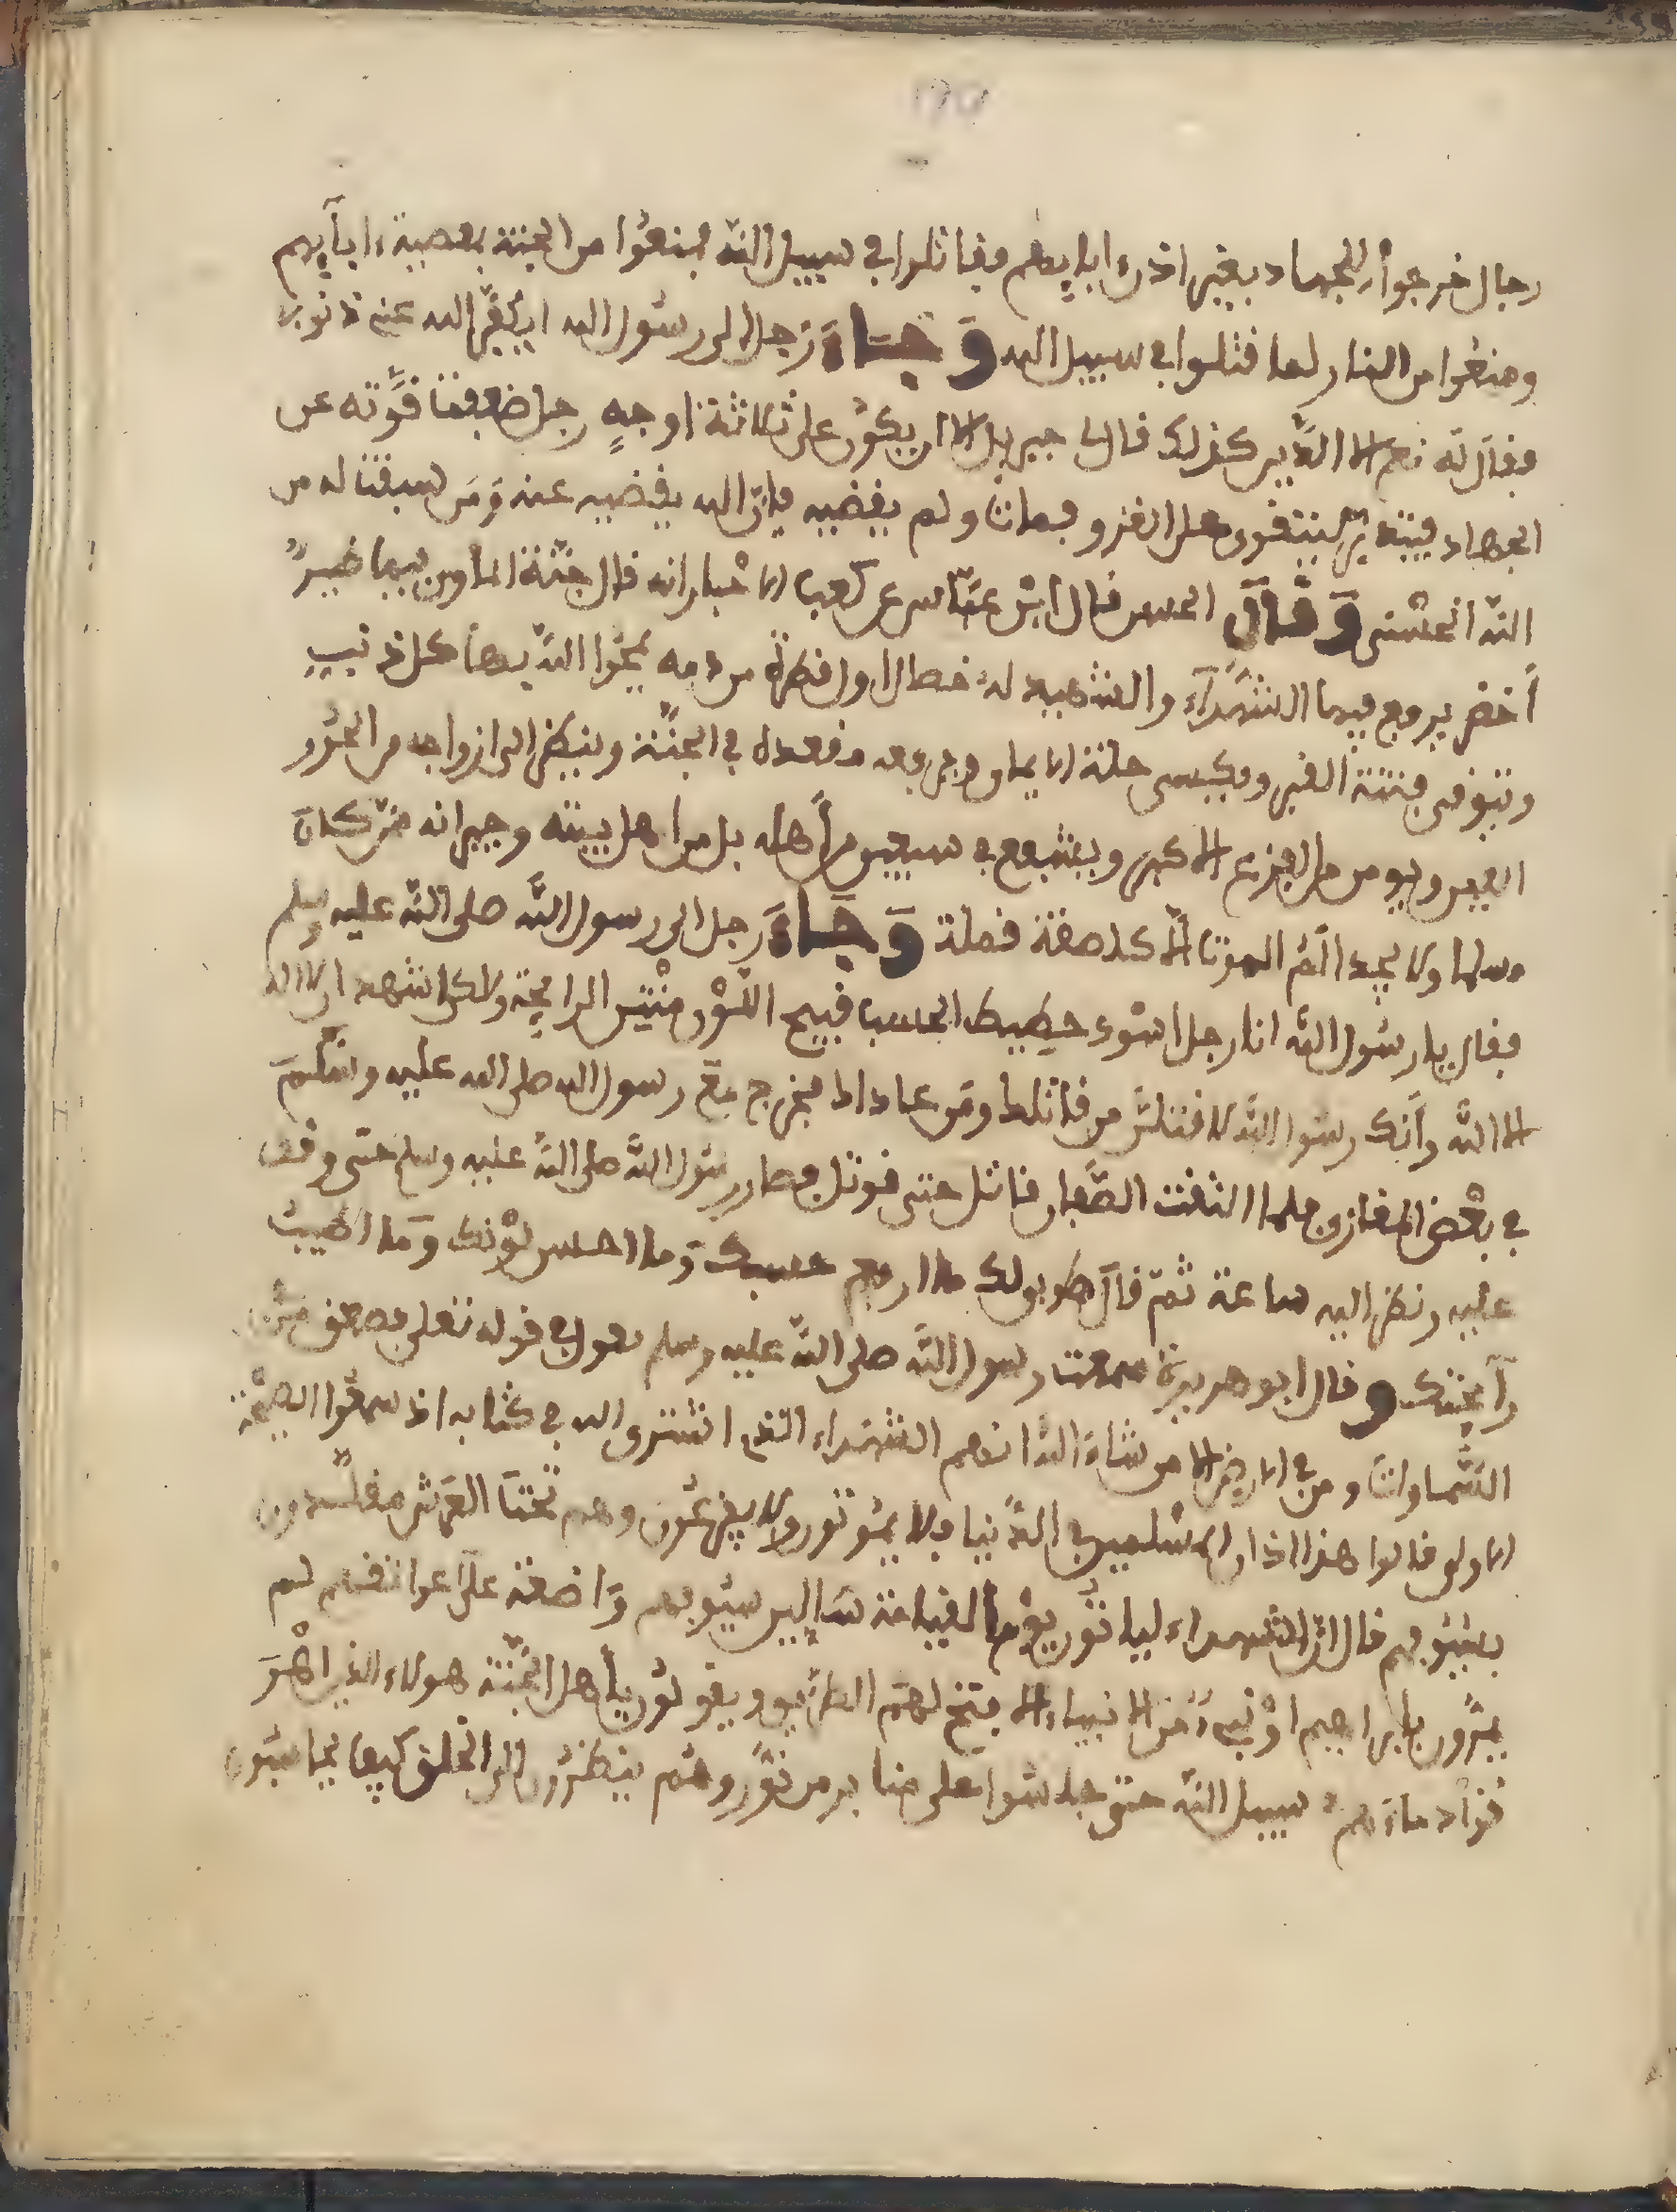 رجال خرجوا للجهاد بغير اذن ءابايهم فقاتلوا في سبيل الله فمنعوا من الجنة بمعصية ءابآيهم
ومنعوا من النار لما قتلوا في سبيل الله وَجَآءَ رَجل الى رسُول الله ايكفّر الله عني ذنوبي
فقال له نعم الا الدَّين كذلك قال لي جبريل الا ان يكون على ثلاثة اوجهٍ رجل ضعفت قوّته عن
الجهاد فيتداين ليتقوى على الغزو فمات ولم يقضيه فإنّ الله يقضيه عنه وَمَن سبقت له من
الله الحسْنى وَقَالَ الحسن قال ابن عبّاس عن كعب الاحبار انه قال جنّة الماوى فيها طيرٌ
أخضر يرجع فيها الشهَدَآء والشهيد له خصال اول قطرة من دمه يمحُوا الله بها كل ذنبٍ
وتوفى فتنة القبر ويكسى حلة الايمان ويرى مقعده في الجنّة وينظر الى ازواجه من الحُور
العين ويومن من الفزع الاكبر ويشفع في سبعين من أهله بل من اهل بيته وجيرانه مَن كان
مسلما ولا يجد ألم الموت الا كلصقة قملة وَجَآءَ رجل الى رسول الله صلى الله عليه وسلم
فقال يا رسُول الله انا رجل اسْود حطيط الحسب قبيح اللّوْن منْتِن الرايحة ولاكن اشهد ان لا اله
الا الله وأنك رسُول الله لاقتلنّ من قاتلك ومَن عاداك فخرج مَعَ رسول الله صلى الله عليه وسَلّمَ
في بعْض المغازي فلما التقت الصّفان قاتل حتى قوتل فصار رسُول الله صلى الله عليه وسلم حتى وقف
عليه ونظر اليه ساعة ثمّ قال طوبى لك ما ارفع حسبك وَما احسن لوْنك وَما اطيبُ
رآيحتك وقال ابو هريرة سمعت رسول الله صلى الله عليه وسلم يقول في قوله تعلى فصعق مَن في
السَّماوات ومن في الارض الا من شاءَ الله انهم الشهَداء الذي اشترى الله في كتابه اذ سمعُوا الصيْحَة
الاولى قالوا هذا اذان المسْلمين في الدّنيا فلا يمُوتون ولا يفزعُون وهم تحْتَ العَرش مقلّدون
بسُيُوفهم قال انّ الشهداء لياتُون يوْم القيامة سَالين سيُوفهم وَاضعة علَى عواتقهم لم
يمرّون بابراهيم اوْ نبيءٍ من الانبياء الا يتنحّ لهمُ الطّريق ويقولون يأهل الجنّة هولاء الذي اهْرَ
قوا دماءَهم في سبيل الله حتى جلسُوا علَى منابر من نُورٍ وهُم ينظرُون الى الخلق كيف يحاسَبُون